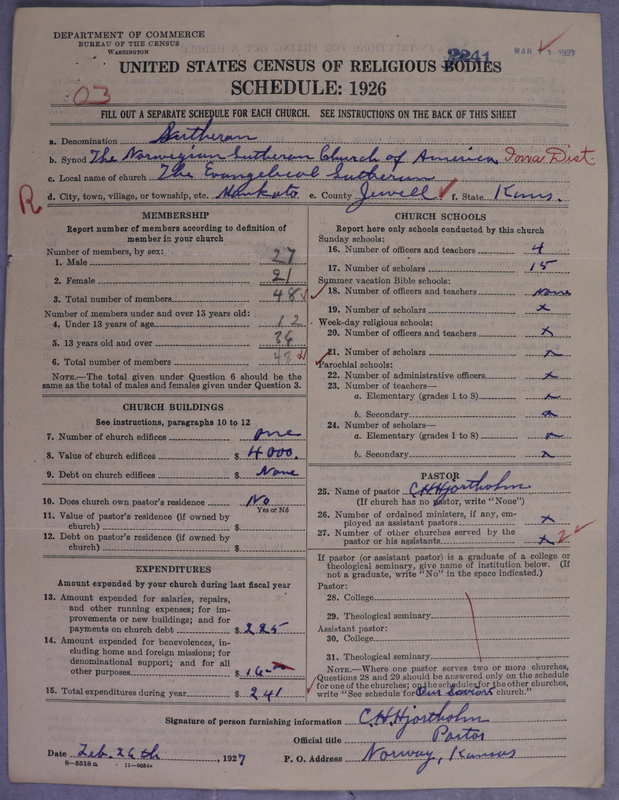 DEPARTMENT OF COMMERCE
BUREAU OF THE CENSUS
WASHINGTON
2241
MAR 11 1927
UNITED STATES CENSUS OF RELIGIOUS BODIES
SCHEDULE: 1926
03
FILL OUT A SEPARATE SCHEDULE FOR EACH CHURCH. SEE INSTRUCTIONS ON THE BACK OF THIS SHEET
a. Denomination Lutheran
b. Synod The Norwegian Lutheran Church of America Iowa Dist.
c. Local name of church The Evangelical Lutheran
R d. City, town, village, or township, etc. Mankato e. County Jewell f. State Kans.
MEMBERSHIP
Report number of members according to definition of
member in your church
Number of members, by sex:
1. Male 27
2. Female 21
3. Total number of members 48
Number of members under and over 13 years old:
4. Under 13 years of age 12
5. 13 years old and over 36
6. Total number of members 48
NOTE.—The total given under Question 6 should be the
same as the total of males and females given under Question 3.
CHURCH BUILDINGS
See instructions, paragraphs 10 to 12
7. Number of church edifices one
8. Value of church edifices $ 4000.
9. Debt on church edifices $ None
10. Does church own pastor's residence No
Yes or No
11. Value of pastor's residence (if owned by
church) $
12. Debt on pastor's residence (if owned by
church) $
EXPENDITURES
Amount expended by your church during last fiscal year
13. Amount expended for salaries, repairs,
and other running expenses; for im-
provements or new buildings; and for
payments on church debt $ 225
14. Amount expended for benevolences, in-
cluding home and foreign missions; for
denominational support; and for all
other purposes $ 16
15. Total expenditures during year $ 241
CHURCH SCHOOLS
Report here only schools conducted by this church
Sunday schools:
16. Number of officers and teachers 4
17. Number of scholars 15
Summer vacation Bible schools:
18. Number of officers and teachers None
19. Number of scholars x
Week-day religious schools:
20. Number of officers and teachers x
21. Number of scholars x
Parochial schools:
22. Number of administrative officers x
23. Number of teachers—
a. Elementary (grades 1 to 8) x
b. Secondary x
24. Number of scholars—
a. Elementary (grades 1 to 8) x
b. Secondary x
PASTOR
25. Name of pastor C.H.Hjortholm
(If church has no pastor, write "None")
26. Number of ordained ministers, if any, em-
ployed as assistant pastors x
27. Number of other churches served by the
pastor or his assistants x 2
If pastor (or assistant pastor) is a graduate of a college or
theological seminary, give name of institution below. (If
not a graduate, write "No" in the space indicated.)
Pastor:
28. College
29. Theological seminary
Assistant pastor:
30. College
31. Theological seminary
NOTE.—Where one pastor serves two or more churches,
Questions 28 and 29 should be answered only on the schedule
for one of the churches; on the schedules for the other churches,
write "See schedule for Our Saviors church."
Signature of person furnishing information C.H.Hjortholm
Official title Pastor
Date Feb. 26th, 1927 P. O. Address Norway, Kansas
8—5518a 11—9054